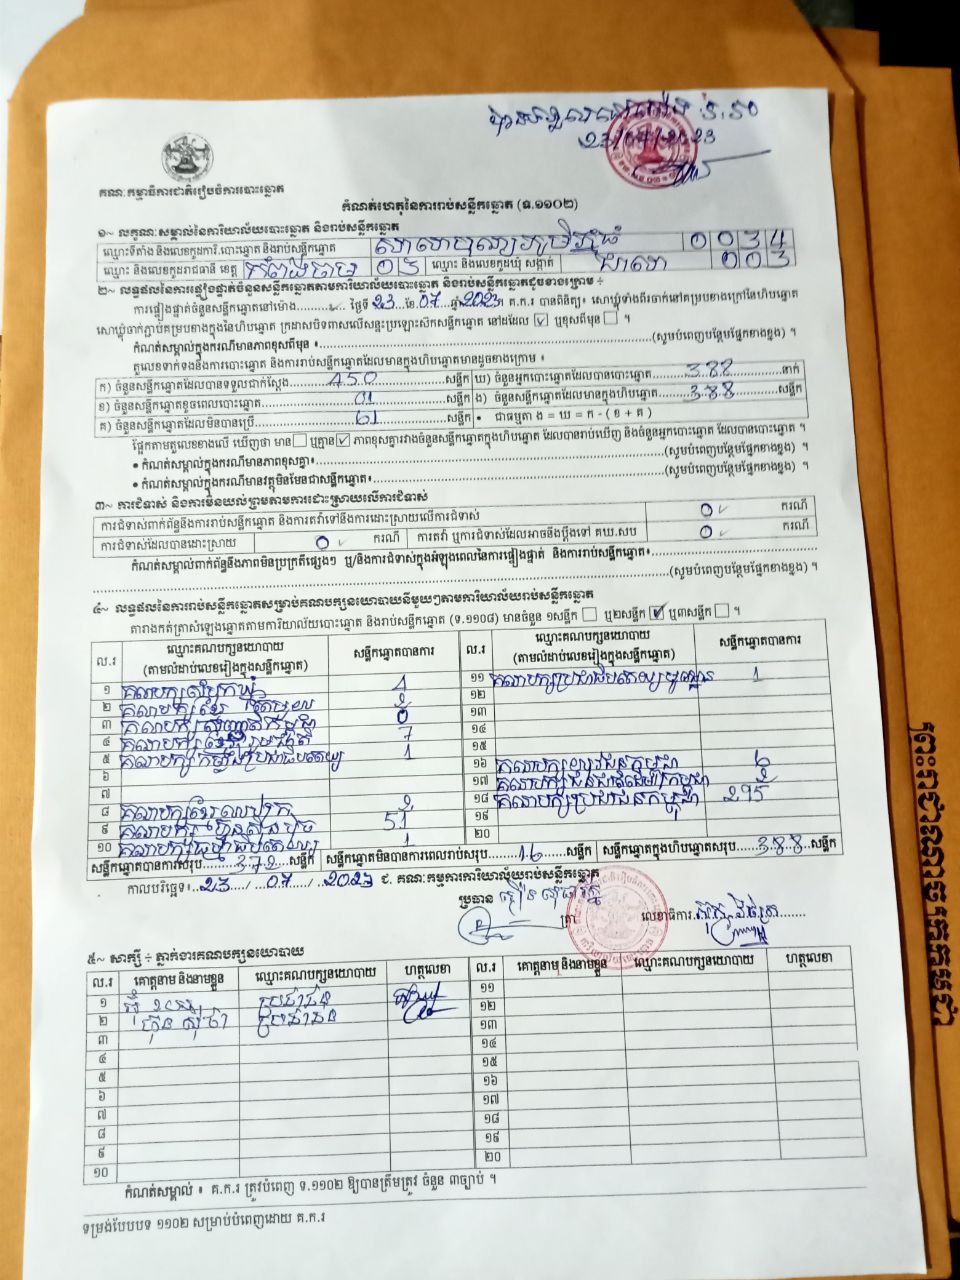 ២៣/០៧/២០២៣
គណៈកម្មាធិការជាតិរៀបចំការបោះឆ្នោត
កំណត់ហេតុនៃការរាប់សន្លឹកឆ្នោត (ទ.១១០២)
១~ លក្ខណៈសម្គាល់នៃការិយាល័យបោះឆ្នោត និងរាប់សន្លឹកឆ្នោត
ឈ្មោះទីតាំង និងលេខកូដការិ.បោះឆ្នោត និងរាប់សន្លឹកឆ្នោត
ឈ្មោះ និងលេខកូដរាជធានី ខេត្ត កំពង់ចាម 03 ឈ្មោះ និងលេខកូដឃុំ សង្កាត់ 003
២~ លទ្ធផលនៃការផ្ទៀងផ្ទាត់ចំនួនសន្លឹកឆ្នោតតាមការិយាល័យបោះឆ្នោត និងរាប់សន្លឹកឆ្នោតដូចខាងក្រោម ៖
ការផ្ទៀងផ្ទាត់ចំនួនសន្លឹកឆ្នោតនៅម៉ោង ថ្ងៃទី 23 ខែ 07 ឆ្នាំ 2023 គ.ក.រ បានពិនិត្យ៖ សោឃ្លុំទាំងពីរចាក់នៅគម្របខាងក្រៅនៃហិបឆ្នោត
សោឃ្លុំចាក់ភ្ជាប់គម្របខាងក្នុងនៃហិបឆ្នោត ក្រដាសបិទពាសលើសន្ទះប្រឡោះស៊ីកសន្លឹកឆ្នោត នៅដដែល ឬខុសពីមុន ។
កំណត់សម្គាល់ក្នុងករណីមានភាពខុសពីមុន ៖ (សូមបំពេញបន្ថែមផ្នែកខាងខ្នង) ។
តួលេខទាក់ទងនឹងការបោះឆ្នោត និងការរាប់សន្លឹកឆ្នោតដែលមានក្នុងហិបឆ្នោតមានដូចខាងក្រោម ៖
ក) ចំនួនសន្លឹកឆ្នោតដែលបានទទួលជាក់ស្តែង 450 សន្លឹក ឃ) ចំនួនអ្នកបោះឆ្នោតដែលបានបោះឆ្នោត 388 នាក់
ខ) ចំនួនសន្លឹកឆ្នោតខូចពេលបោះឆ្នោត 01 សន្លឹក ង) ចំនួនសន្លឹកឆ្នោតដែលមានក្នុងហិបឆ្នោត 388 សន្លឹក
គ) ចំនួនសន្លឹកឆ្នោតដែលមិនបានប្រើ 61 សន្លឹក • ជាធម្មតា ង = ឃ = ក - ( ខ + គ )
ផ្អែកតាមតួលេខខាងលើ ឃើញថា មាន ឬគ្មាន ភាពខុសគ្នារវាងចំនួនសន្លឹកឆ្នោតក្នុងហិបឆ្នោត ដែលបានរាប់ឃើញ និងចំនួនអ្នកបោះឆ្នោត ដែលបានបោះឆ្នោត ។
• កំណត់សម្គាល់ក្នុងករណីមានភាពខុសគ្នា៖ (សូមបំពេញបន្ថែមផ្នែកខាងខ្នង) ។
• កំណត់សម្គាល់ក្នុងករណីមានវត្ថុមិនមែនជាសន្លឹកឆ្នោត៖ (សូមបំពេញបន្ថែមផ្នែកខាងខ្នង) ។
៣~ ការជំទាស់ និងការមិនយល់ព្រមតាមការដោះស្រាយលើការជំទាស់
ការជំទាស់ពាក់ព័ន្ធនឹងការរាប់សន្លឹកឆ្នោត និងការតវ៉ាទៅនឹងការដោះស្រាយលើការជំទាស់ 0 ករណី
ការជំទាស់ដែលបានដោះស្រាយ 0 ករណី ការតវ៉ា ឬការជំទាស់ដែលអាចនឹងប្ដឹងទៅ គឃ.សប 0 ករណី
កំណត់សម្គាល់ពាក់ព័ន្ធនឹងភាពមិនប្រក្រតីផ្សេងៗ ឬ/និងការជំទាស់ក្នុងអំឡុងពេលនៃការផ្ទៀងផ្ទាត់ និងការរាប់សន្លឹកឆ្នោត៖
(សូមបំពេញបន្ថែមផ្នែកខាងខ្នង) ។
៤~ លទ្ធផលនៃការរាប់សន្លឹកឆ្នោតសម្រាប់គណបក្សនយោបាយនីមួយៗតាមការិយាល័យរាប់សន្លឹកឆ្នោត
តារាងកត់ត្រាសំឡេងឆ្នោតតាមការិយាល័យបោះឆ្នោត និងរាប់សន្លឹកឆ្នោត (ទ.១១០៨) មានចំនួន ១សន្លឹក ឬ២សន្លឹក ឬ៣សន្លឹក ។
ល.រ ឈ្មោះគណបក្សនយោបាយ (តាមលំដាប់លេខរៀងក្នុងសន្លឹកឆ្នោត) សន្លឹកឆ្នោតបានការ ល.រ ឈ្មោះគណបក្សនយោបាយ (តាមលំដាប់លេខរៀងក្នុងសន្លឹកឆ្នោត) សន្លឹកឆ្នោតបានការ
១ គណបក្សសំបុកឃ្មុំ ១១ គណបក្សប្រជាធិបតេយ្យមូលដ្ឋាន 1
២ គណបក្សខ្មែរ ១២
៣ គណបក្ស កម្ពុជា ១៣
៤ គណបក្សខ្មែររួបរួមជាតិ 7 ១៤
៥ គណបក្សកម្លាំងប្រជាធិបតេយ្យ 1 ១៥
៦ ១៦ គណបក្សយុវជនកម្ពុជា 6
៧ ១៧ គណបក្សជនជាតិដើមកម្ពុជា
៨ គណបក្សខ្មែរឈប់ក្រ ១៨ គណបក្សប្រជាជនកម្ពុជា 295
៩ គណបក្សហ៊្វុនស៊ិនប៉ិច 51 ១៩
១០ គណបក្សធម្មាធិបតេយ្យ 1 ២០
សន្លឹកឆ្នោតបានការសរុប 372 សន្លឹក សន្លឹកឆ្នោតមិនបានការពេលរាប់សរុប 16 សន្លឹក សន្លឹកឆ្នោតក្នុងហិបឆ្នោតសរុប 388 សន្លឹក
កាលបរិច្ឆេទ៖ 23 / 07 / 2023 ជ. គណៈកម្មការការិយាល័យរាប់សន្លឹកឆ្នោត
ប្រធាន ត្រា លេខាធិការ
៥~ សាក្សី ÷ ភ្នាក់ងារគណបក្សនយោបាយ
ល.រ គោត្តនាម និងនាមខ្លួន ឈ្មោះគណបក្សនយោបាយ ហត្ថលេខា ល.រ គោត្តនាម និងនាមខ្លួន ឈ្មោះគណបក្សនយោបាយ ហត្ថលេខា
១ ប្រជាជន ១១
២ ប្រជាជន ១២
៣ ១៣
៤ ១៤
៥ ១៥
៦ ១៦
៧ ១៧
៨ ១៨
៩ ១៩
១០ ២០
កំណត់សម្គាល់ ៖ គ.ក.រ ត្រូវបំពេញ ទ.១១០២ ឱ្យបានត្រឹមត្រូវ ចំនួន ៣ច្បាប់ ។
ទម្រង់បែបបទ ១១០២ សម្រាប់បំពេញដោយ គ.ក.រ